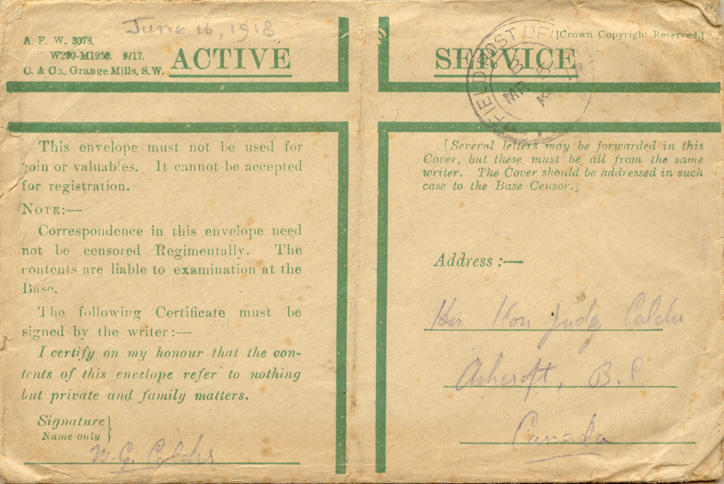 June 16, 1918.
A. F. W. 3078.
W280-M1950. 9/17.
C. & Co., Grange Mills, S.W.
ACTIVE SERVICE
[Crown Copyright Reserved.]
FIELD POST OF
This envelope must not be used for
coin or valuables. It cannot be accepted
for registration.
NOTE:—
Correspondence in this envelope need
not be censored Regimentally. The
contents are liable to examination at the
Base.
The following Certificate must be
signed by the writer:—
I certify on my honour that the con-
tents of this envelope refer to nothing
but private and family matters.
Signature}
Name only
W. G. Calder
[Several letters may be forwarded in this
Cover, but these must be all from the same
writer. The Cover should be addressed in such
case to the Base Censor.]
Address :—
His Hon Judg Calder
Ashcroft, B.C.
Canada